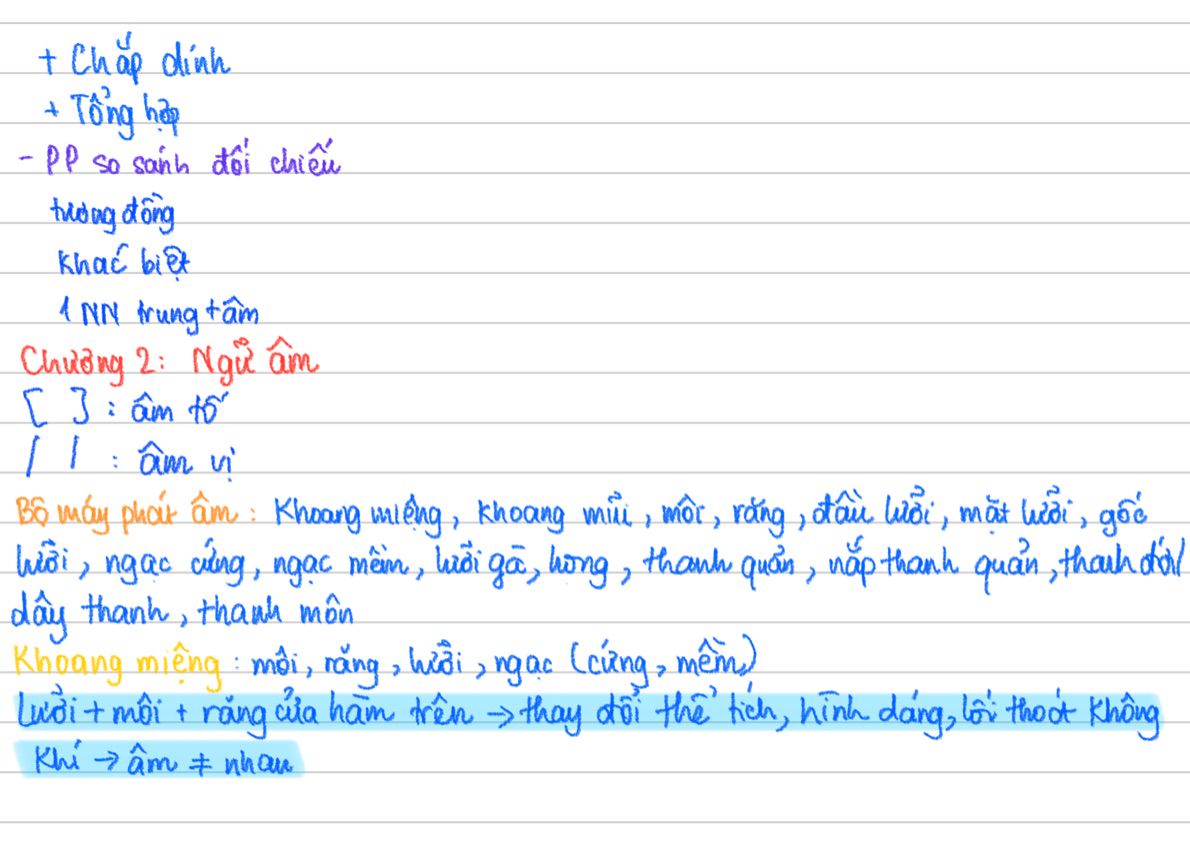 + Chắp dính
+ Tổng hợp
- PP so sánh đối chiếu
tương đồng
khác biệt
1 NN trung tâm
Chương 2: Ngữ âm
[ ] : âm tố
/ / : âm vị
Bộ máy phát âm : Khoang miệng, khoang mũi, môi, răng, đầu lưỡi, mặt lưỡi, gốc
lưỡi, ngạc cứng, ngạc mềm, lưỡi gà, họng, thanh quản, nắp thanh quản, thanh đới/
dây thanh, thanh môn
Khoang miệng : môi, răng, lưỡi, ngạc (cứng, mềm)
Lưỡi + môi + răng cửa hàm trên → thay đổi thể tích, hình dáng, lối thoát không
khí → âm ≠ nhau